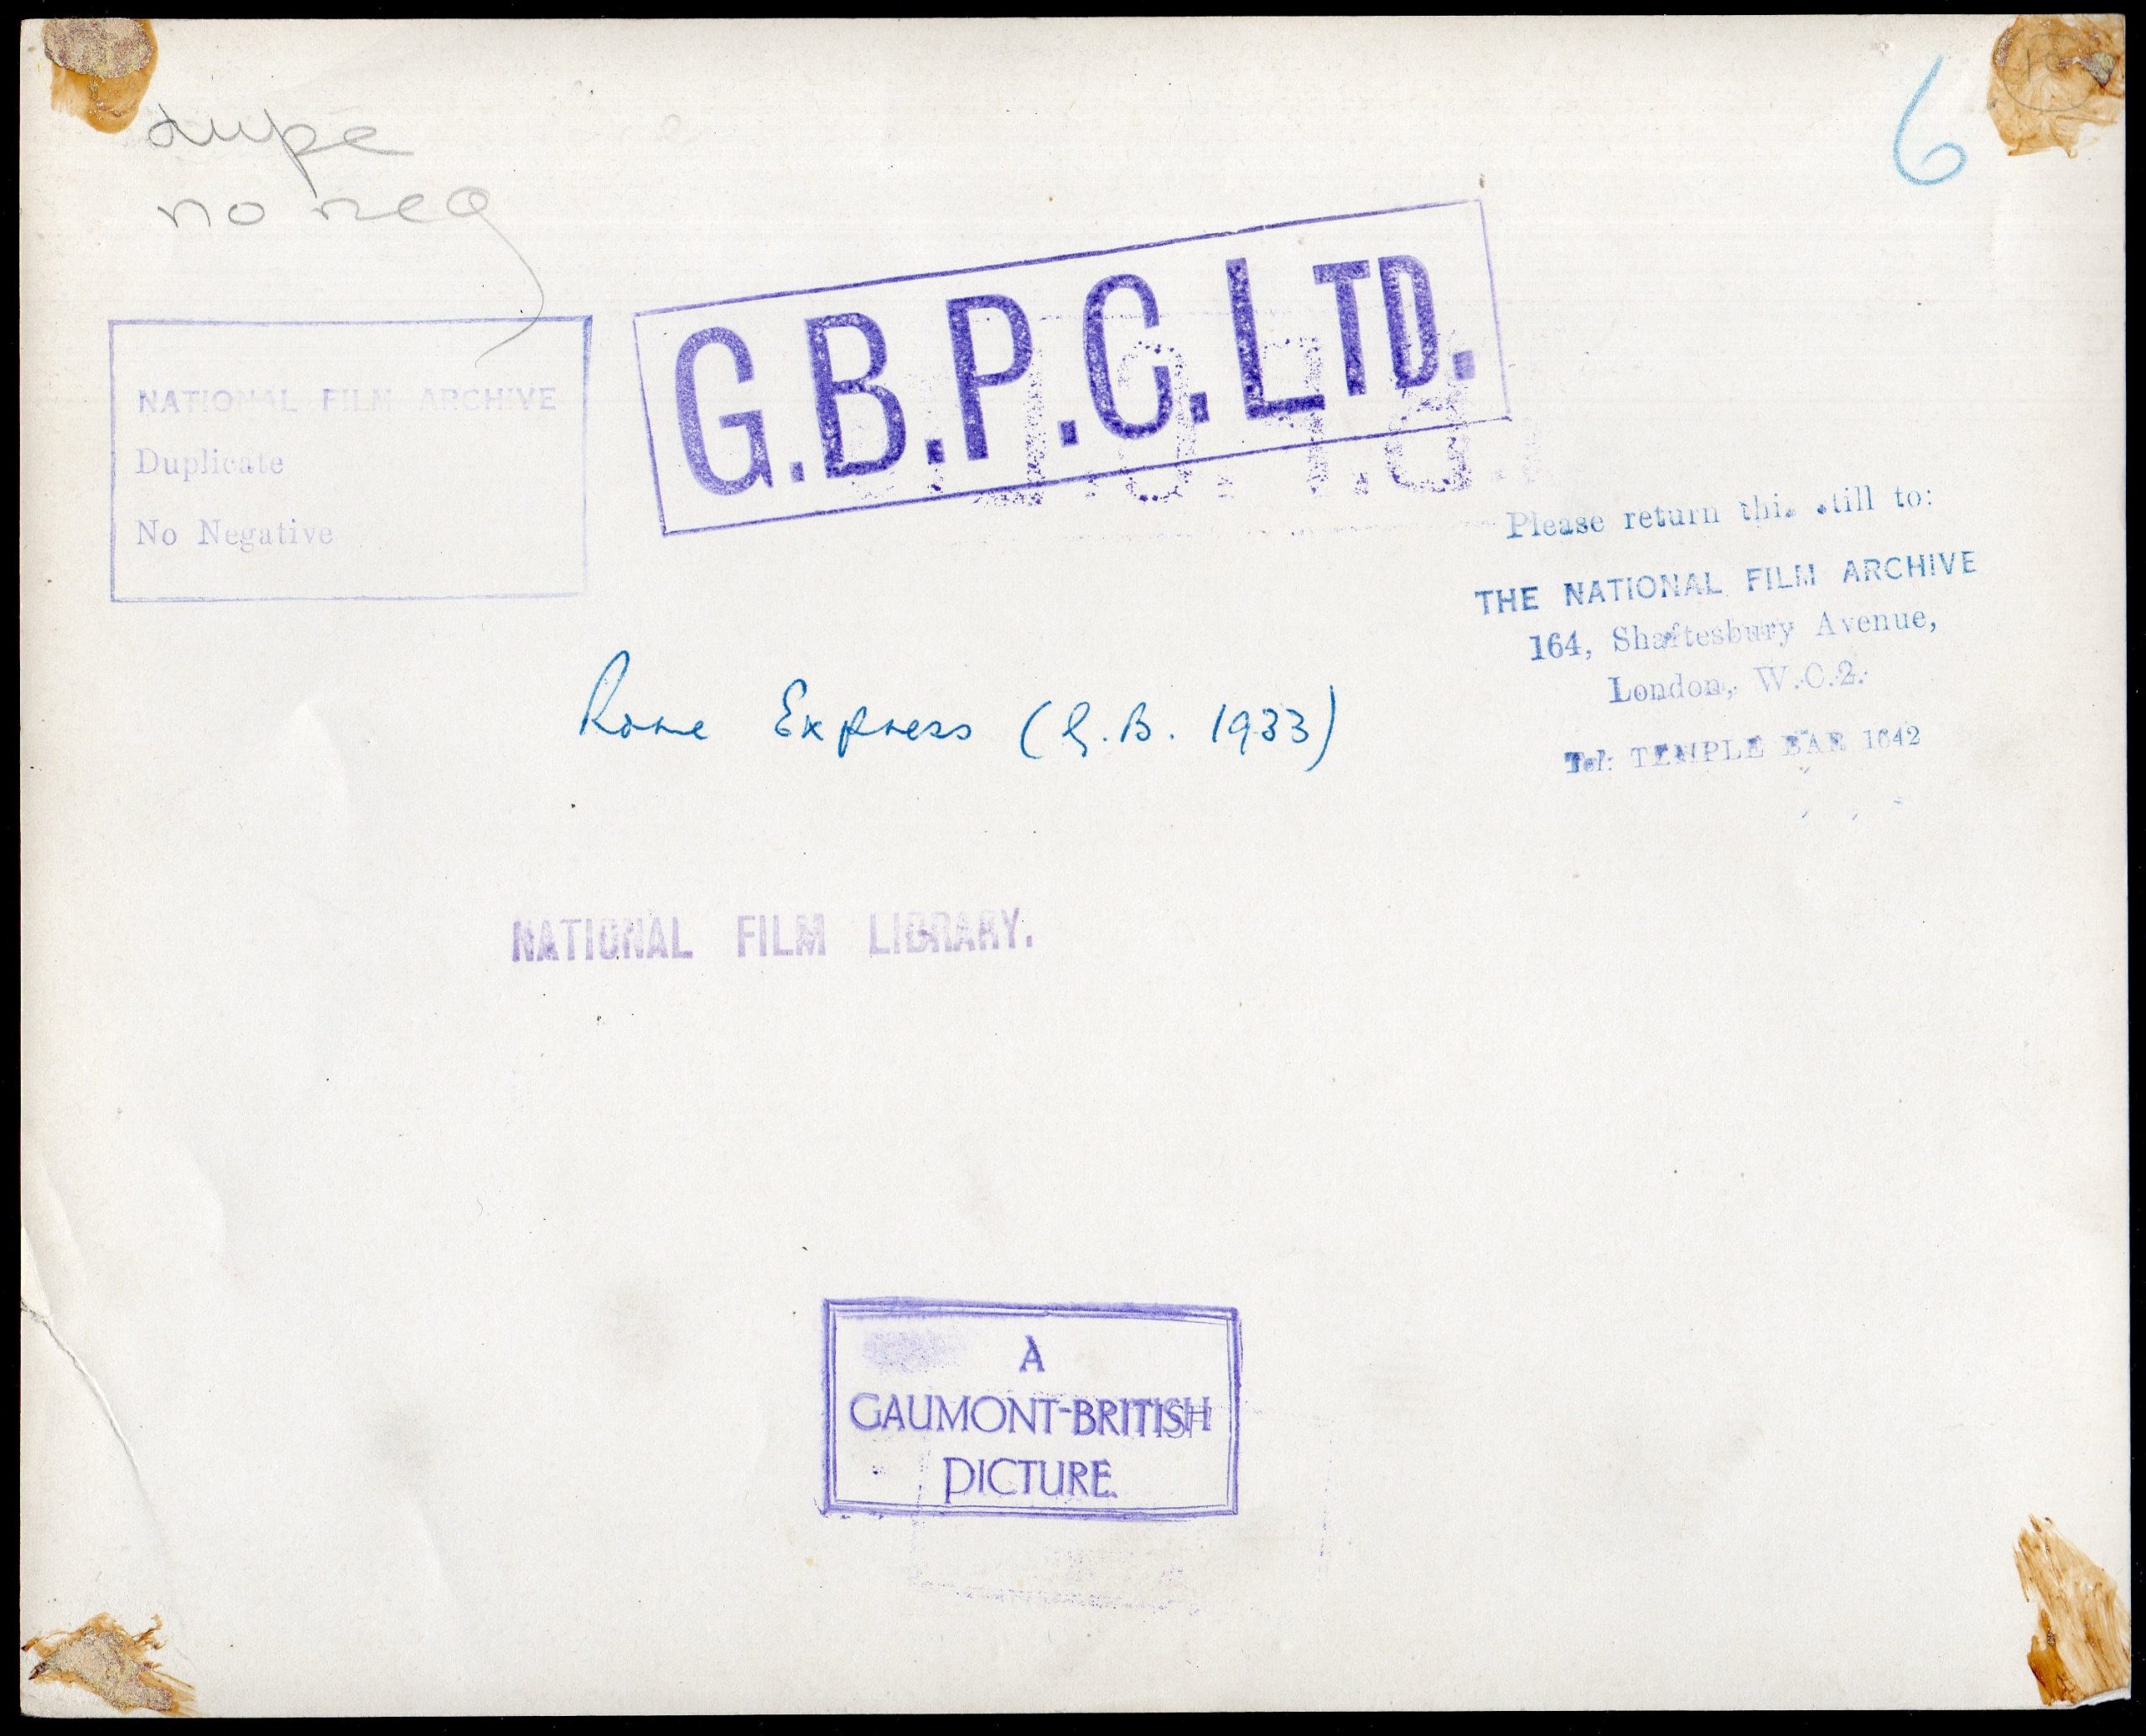 dupe
no neg
6
G.B.P.C. LTD.
NATIONAL FILM ARCHIVE
Duplicate
No Negative
Please return this still to:
THE NATIONAL FILM ARCHIVE
164, Shaftesbury Avenue,
London, W.C.2.
Tel: TEMPLE BAR 1642
Rome Express (G.B. 1933)
NATIONAL FILM LIBRARY.
A
GAUMONT-BRITISH
PICTURE.